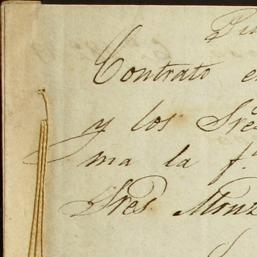 Contrato e
y los Sre
ma la f.
Sres Monz